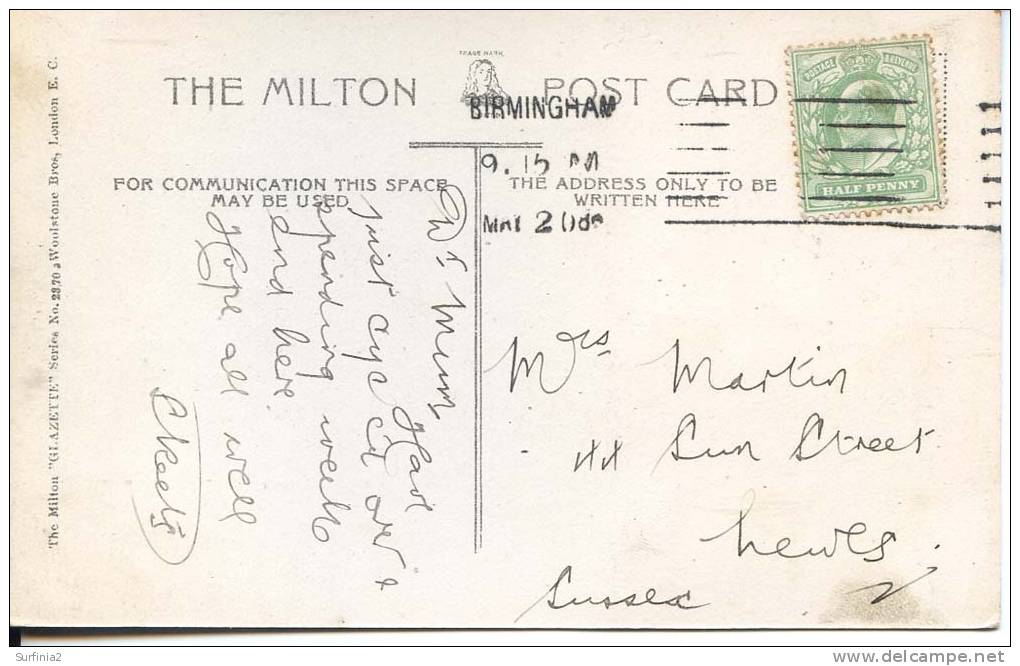 TRADE MARK
THE MILTON POST CARD
BIRMINGHAM
9.15 PM
MAY 2
POSTAGE & REVENUE
HALF PENNY
FOR COMMUNICATION THIS SPACE
MAY BE USED
THE ADDRESS ONLY TO BE
WRITTEN HERE
Dr Mum, Have
just cyc'd over &
spending week
end here.
Hope all well
Skeets
Mrs Martin
44 Sun Street
Lewes
Sussex
The Milton "GLAZETTE" Series No. 2370 Woolstone Bros, London E. C.
Surfinia2
delcampe.net